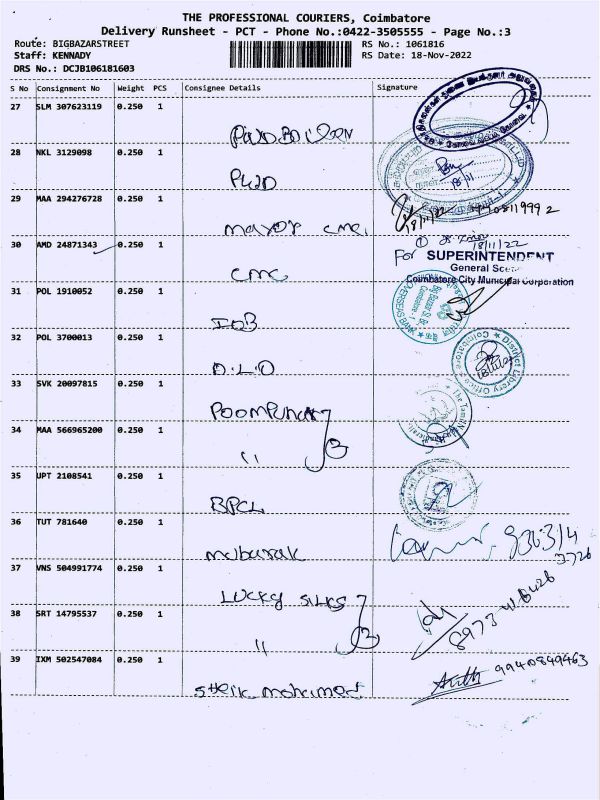 THE PROFESSIONAL COURIERS, Coimbatore
Delivery Runsheet - PCT - Phone No.:0422-3505555 - Page No.:3
Route: BIGBAZARSTREET
RS No.: 1061816
Staff: KENNADY
RS Date: 18-Nov-2022
DRS No.: DCJB106181603
S No Consignment No Weight PCS Consignee Details Signature
27 SLM 307623119 0.250 1
28 NKL 3129098 0.250 1
PWD
18/11
29 MAA 294276728 0.250 1
mayor cmc,
18/11/22
30 AMD 24871343 0.250 1
cmc
18/11/22
For SUPERINTENDENT
General
Coimbatore City Municipal Corporation
31 POL 1910052 0.250 1
IOB
OVERSEAS BANK
32 POL 3700013 0.250 1
D.L.O
District Library Office Coimbatore
33 SVK 20097815 0.250 1
Poompuhar
34 MAA 566965200 0.250 1
"
35 UPT 2108541 0.250 1
BPCL
36 TUT 781640 0.250 1
mubarak
37 VNS 504991774 0.250 1
Lucky silks
38 SRT 14795537 0.250 1
"
39 IXM 502547084 0.250 1
sheik mohamed
9940849463